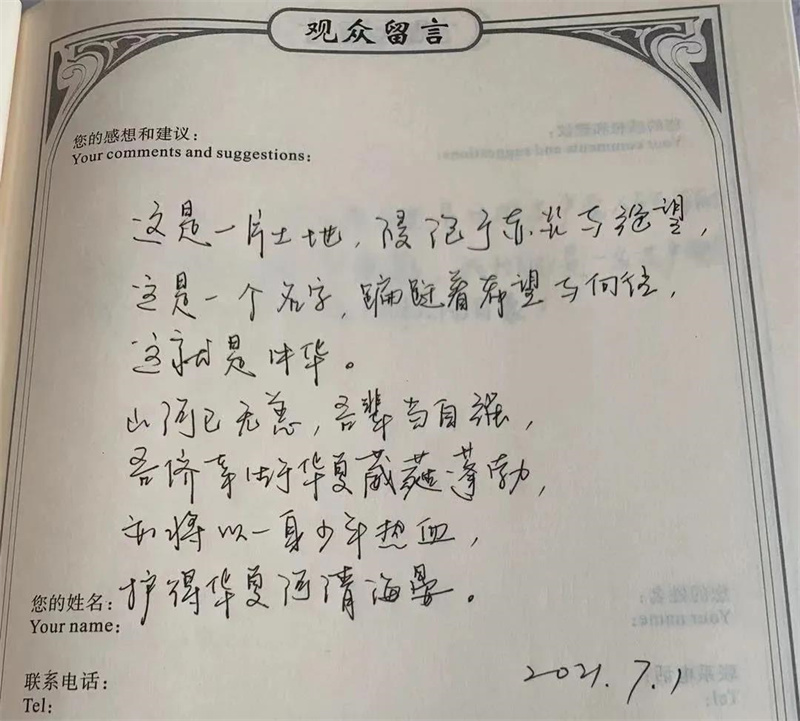 观众留言
您的感想和建议：
Your comments and suggestions:
这是一片土地，浸泡于赤炎与绝望，
这是一个名字，蹁跹着希望与向往，
这就是中华。
山河已无恙，吾辈当自强，
吾侪幸生于华夏葳蕤蓬勃，
亦将以一身少年热血，
护得华夏河清海晏。
您的姓名：
Your name:
2021.7.1
联系电话：
Tel: